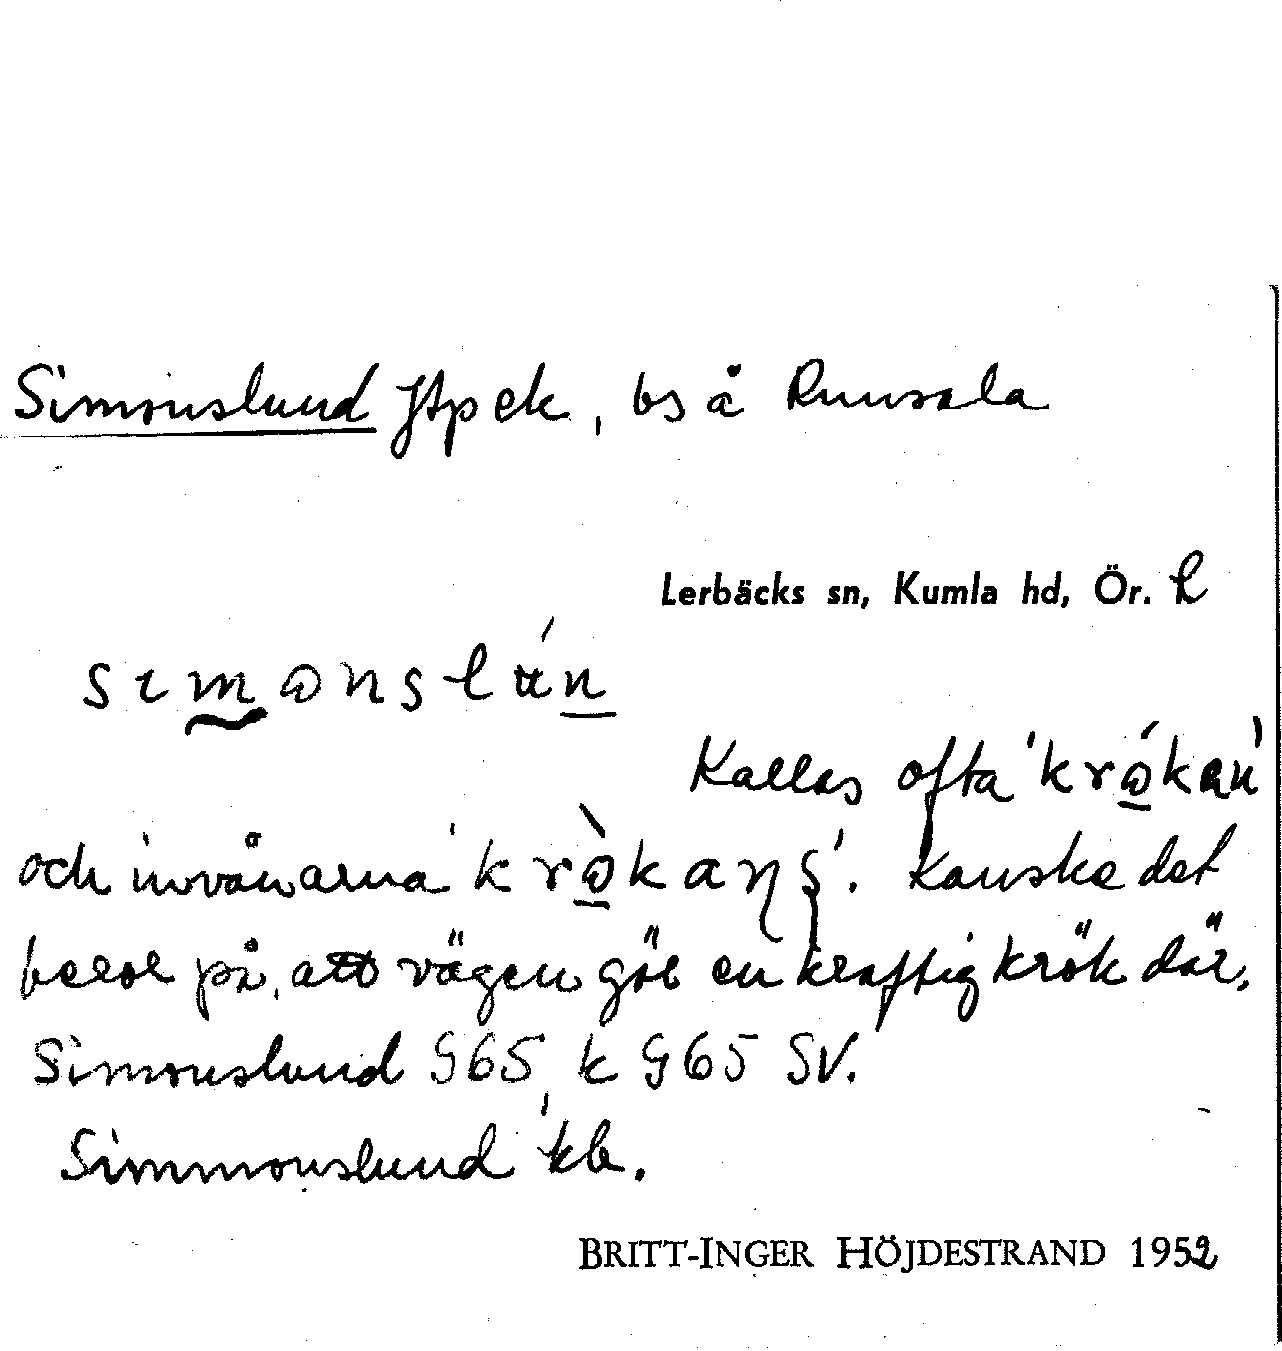 Simonslund JAp ek, bs å Runsala
Lerbäcks sn, Kumla hd, Ör. L
simɷnslún
Kallas ofta 'krɷ́kan'
och invånarna 'krɷ̀kaņş'. Kanske det
beror på, att vägen gör en kraftig krök där.
Simonslund G65, k G65 SV.
Simmonslund kb.
BRITT-INGER HÖJDESTRAND 1952